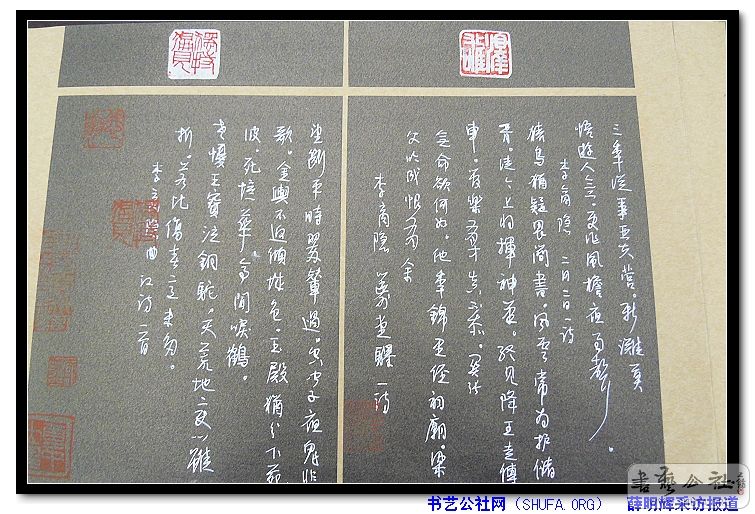 三年从事亚夫营。新滩莫
悟游人意。更作风檐夜雨声。
李商隐 二月二日一诗
猿鸟犹疑畏简书。风云常为护储
胥。徒令上将挥神笔。终见降王走传
车。管乐有才真不忝。关张
无命欲何如。他年锦里经祠庙。梁
父吟成恨有余
李商隐 筹笔驿一诗
望断平时翠辇过。空闻子夜鬼悲
歌。金舆不返倾城色。玉殿犹分下苑
波。死忆华亭闻唳鹤。
老忧王室泣铜驼。天荒地变心虽
折。若比伤春意未多。
李商隐曲江诗一首
书艺公社
书艺公社网（SHUFA.ORG） 薛明辉采访报道